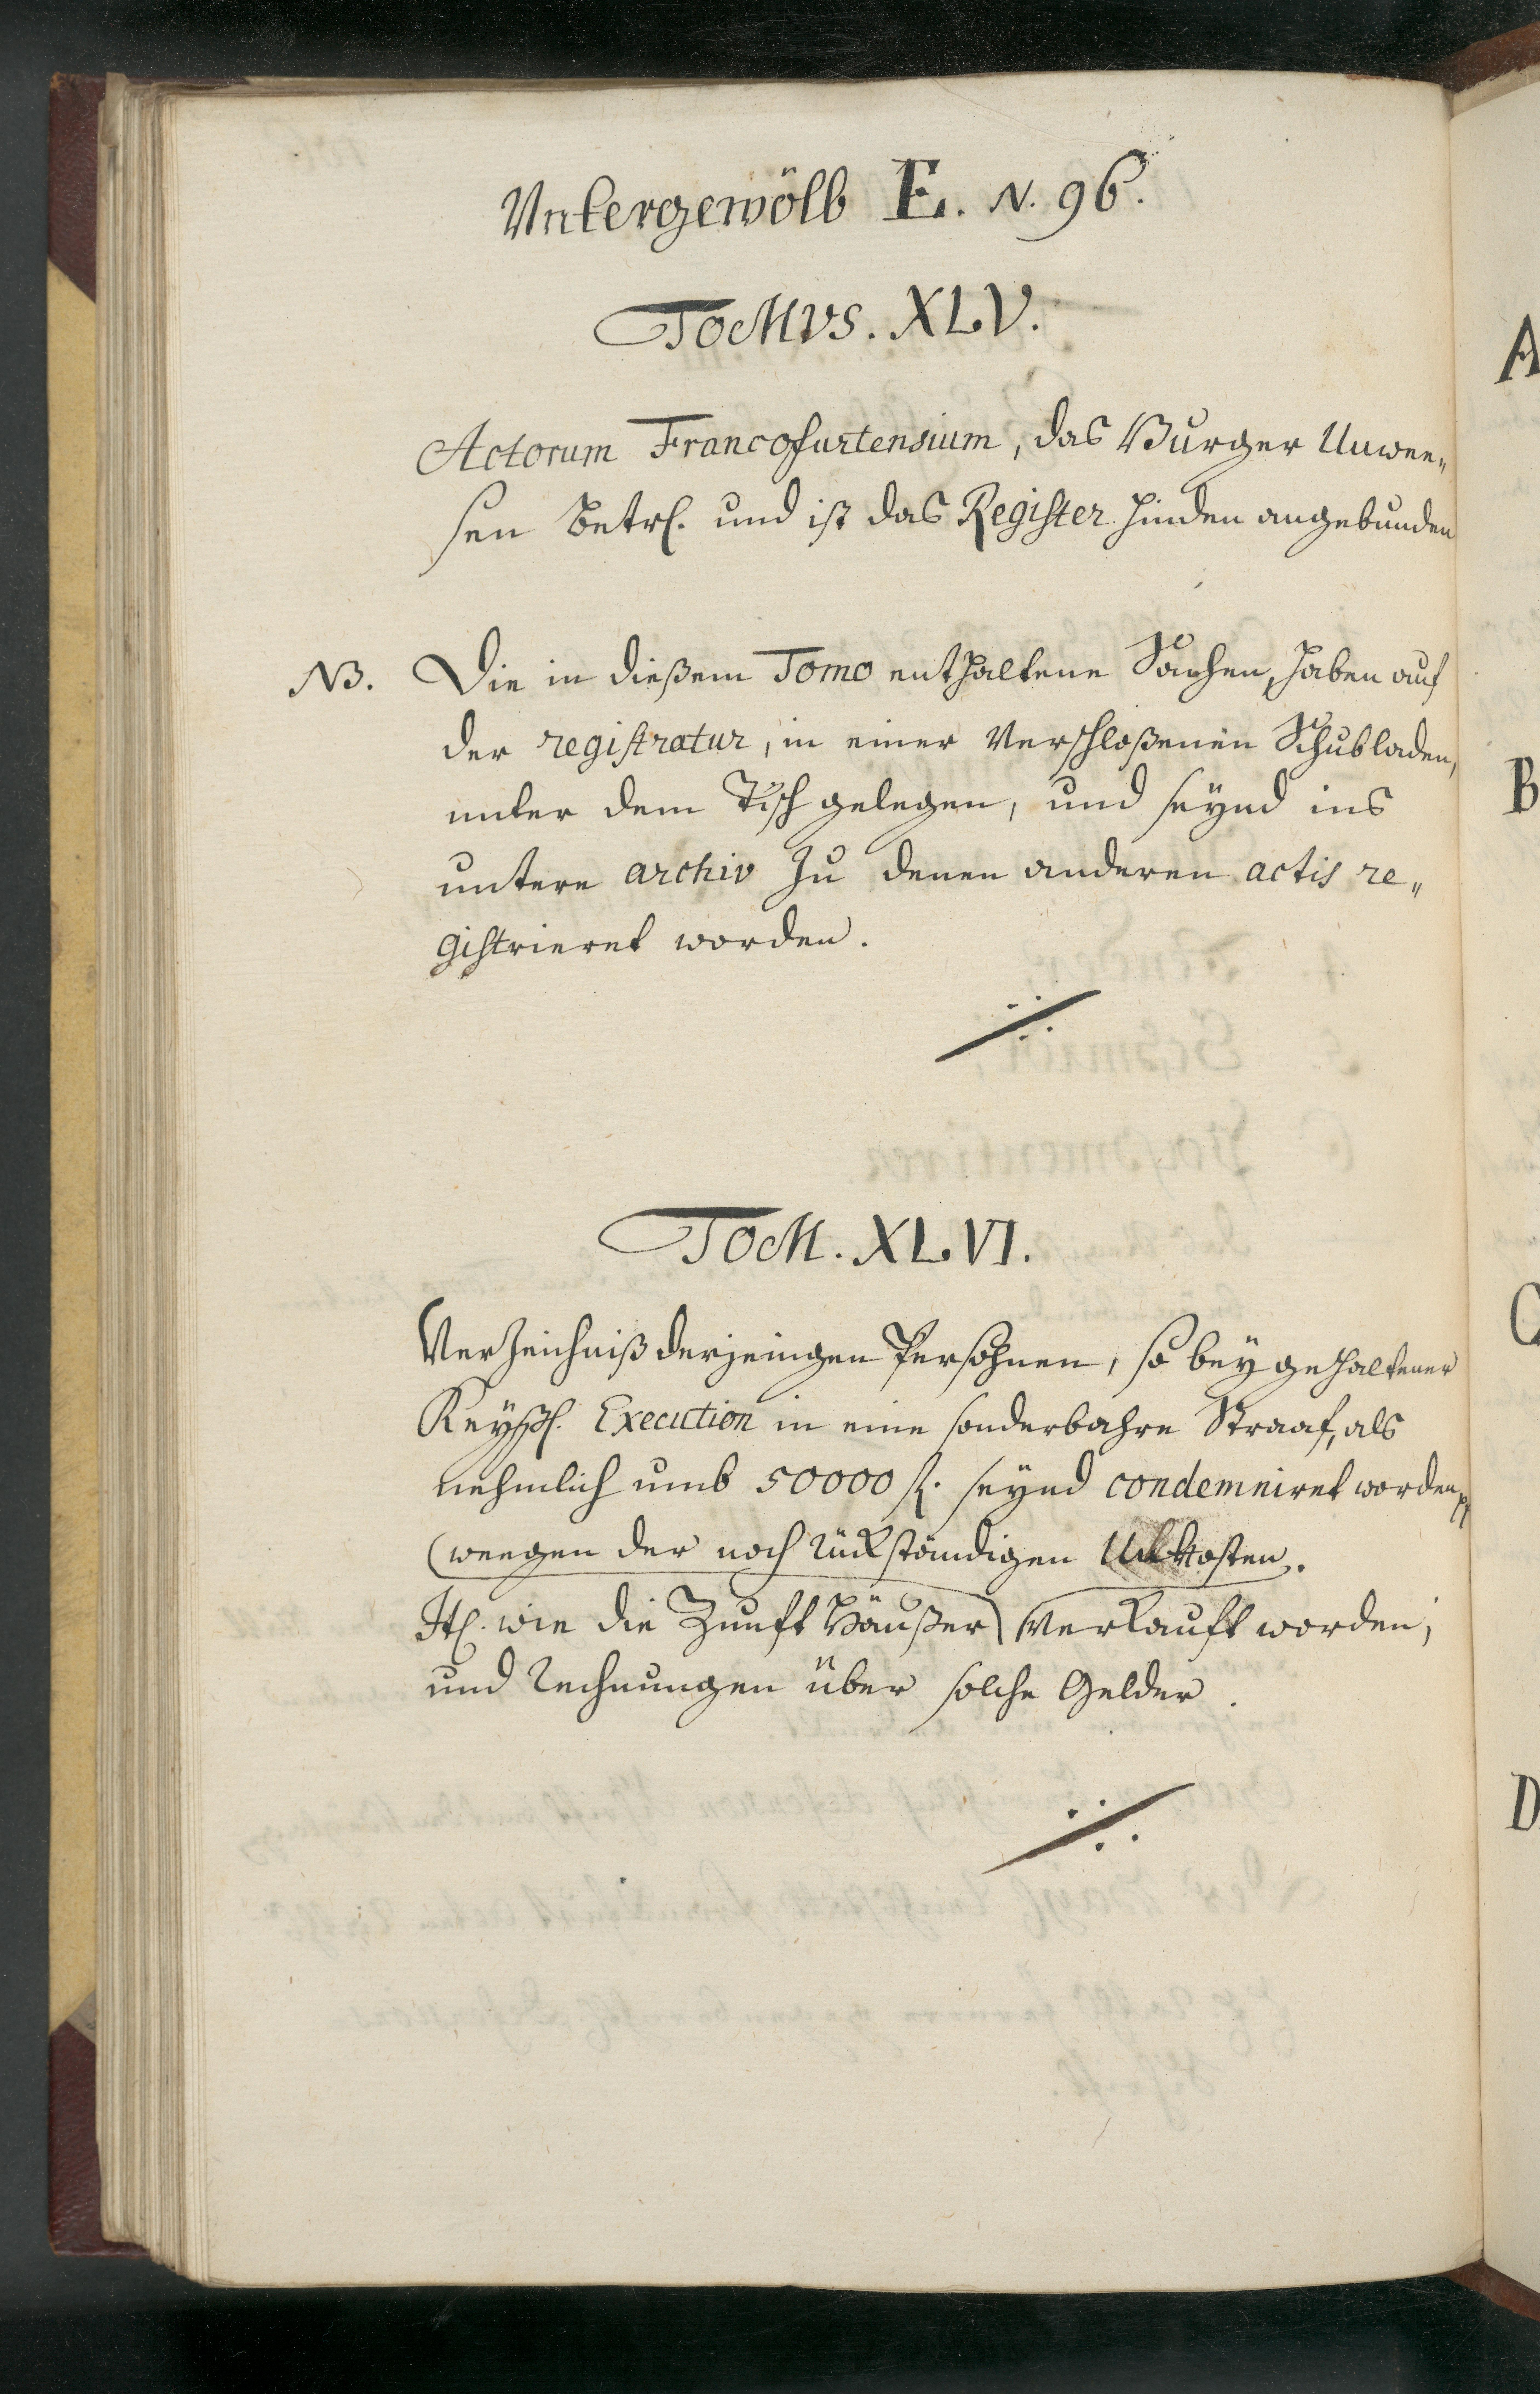 Vntergewölb E. N. 96.
TOMVS. XLV.
Actorum Francofurtensium, das Burger Unwee„
sen betrl. und ist das Register hinden angebunden
NB. Die in dießem Tomo enthaltene Sachen, haben auf
der registratur, in einer Verschloßenen Schubladen,
unter dem Tisch gelegen, und seynd ins
untere archiv zu denen anderen actis re„
gistrieret worden.
TOM. XLVI.
Verzeichniß derjenigen Persohnen, so bey gehaltener
Keyßl. Execution in eine sonderbahre Straaf, als
nehmlich umb 50000 fl. seynd condemniret worden
(weegen der noch rückständigen Unkosten.
It. wie die Zunft Häußer) verkauft worden;
und Rechnungen über solche Gelder.
A
B
C
D